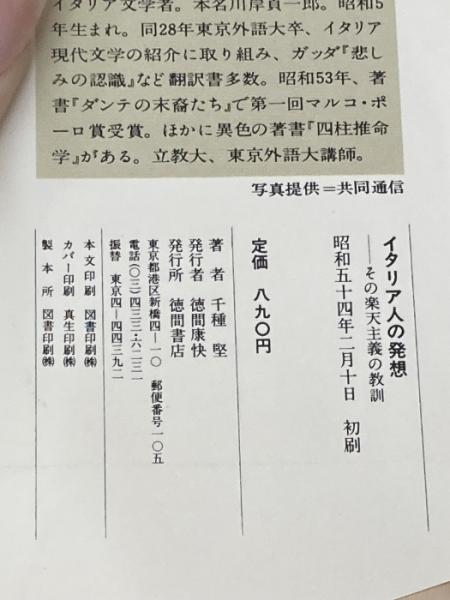 イタリア文学者。本名川岸貞一郎。昭和5
年生まれ。同28年東京外語大卒、イタリア
現代文学の紹介に取り組み、ガッダ『悲し
みの認識』など翻訳書多数。昭和53年、著
書『ダンテの末裔たち』で第一回マルコ・ポ
ーロ賞受賞。ほかに異色の著書『四柱推命
学』がある。立教大、東京外語大講師。
写真提供=共同通信
イタリア人の発想
——その楽天主義の教訓
昭和五十四年二月十日 初刷
定価 八九〇円
著者 千種 堅
発行者 徳間康快
発行所 徳間書店
東京都港区新橋四—一〇 郵便番号一〇五
電話(〇三)四三三・六二三一
振替 東京四—四四三九二
本文印刷 図書印刷㈱
カバー印刷 真生印刷㈱
製本所 図書印刷㈱